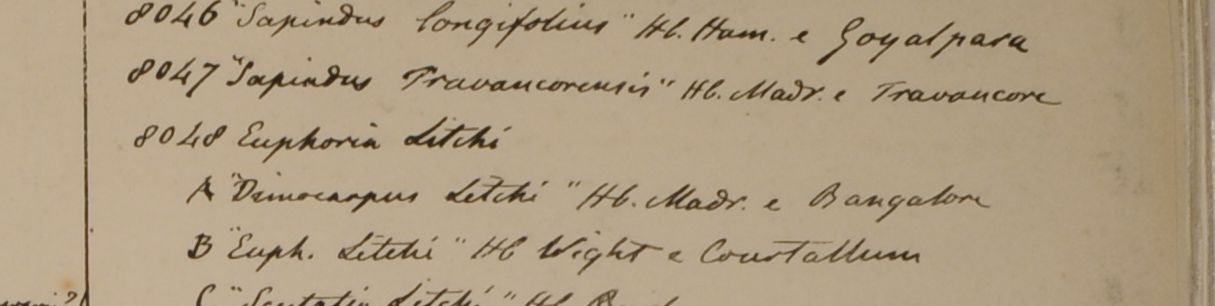 8046 "Sapindus longifolius" Hb. Ham. e Goyalpara
8047 "Sapindus Travancorensis" Hb. Madr. e Travancore
8048 Euphoria Litchi
A "Dimocarpus Litchi" Hb. Madr. e Bangalore
B "Euph. Litchi" Hb Wight e Courtallum
C "Scytalia Litchi" Hb.